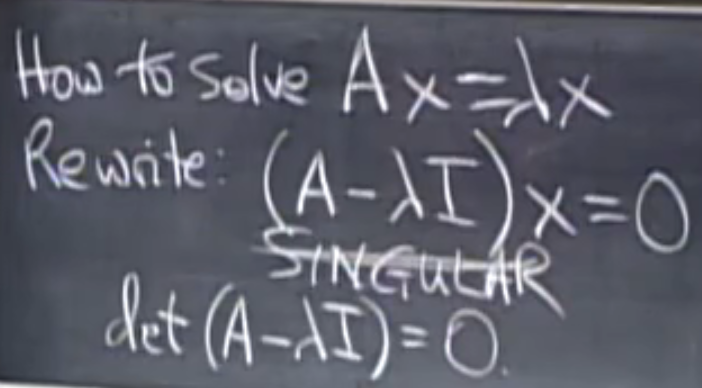 How to solve Ax=λx
Rewrite: (A-λI)x=0
SINGULAR
det(A-λI)=0.